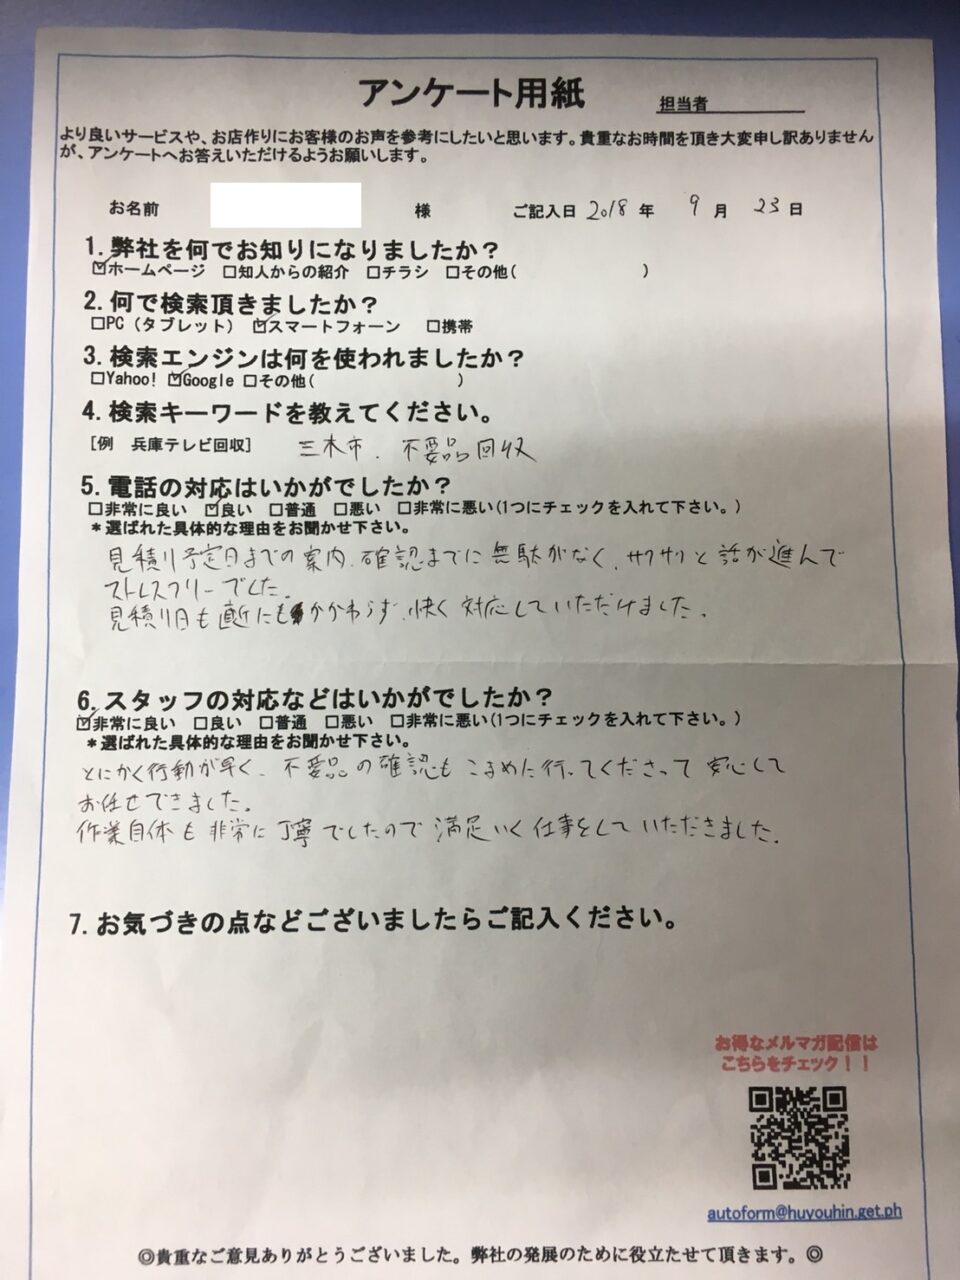 アンケート用紙
担当者
より良いサービスや、お店作りにお客様のお声を参考にしたいと思います。貴重なお時間を頂き大変申し訳ありません
が、アンケートへお答えいただけるようお願いします。
お名前 様 ご記入日 2018 年 9 月 23 日
1. 弊社を何でお知りになりましたか？
☑ホームページ □知人からの紹介 □チラシ □その他( )
2. 何で検索頂きましたか？
□PC（タブレット） ☑スマートフォーン □携帯
3. 検索エンジンは何を使われましたか？
□Yahoo! ☑Google □その他( )
4. 検索キーワードを教えてください。
[例 兵庫テレビ回収] 三木市、不要品回収
5. 電話の対応はいかがでしたか？
□非常に良い ☑良い □普通 □悪い □非常に悪い(1つにチェックを入れて下さい。)
＊選ばれた具体的な理由をお聞かせ下さい。
見積り予定日までの案内、確認までに無駄がなく、サクサクと話が進んで
ストレスフリーでした。
見積り日も直近にもかかわらず、快く対応していただけました。
6. スタッフの対応などはいかがでしたか？
☑非常に良い □良い □普通 □悪い □非常に悪い(1つにチェックを入れて下さい。)
＊選ばれた具体的な理由をお聞かせ下さい。
とにかく行動が早く、不要品の確認もこまめに行ってくださって安心して
お任せできました。
作業自体も非常に丁寧でしたので満足いく仕事をしていただきました。
7. お気づきの点などございましたらご記入ください。
お得なメルマガ配信は
こちらをチェック！！
autoform@huyouhin.get.ph
◎貴重なご意見ありがとうございました。弊社の発展のために役立たせて頂きます。◎